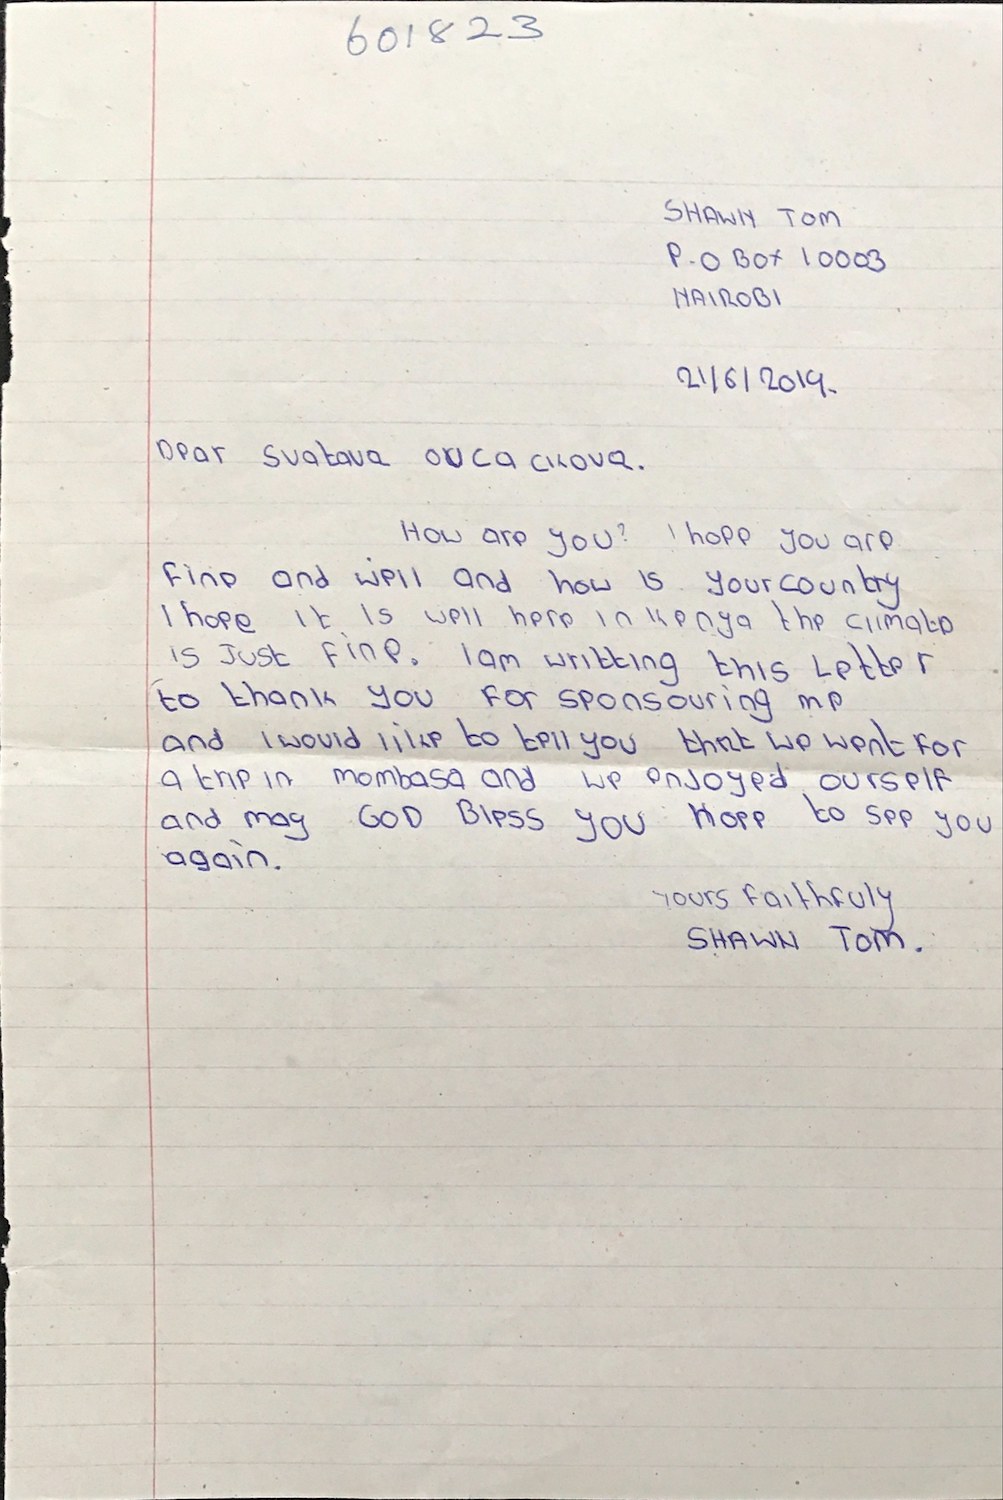 601823
SHAWN TOM
P.O Box 10003
NAIROBI
21/6/2019.
Dear Svatava ovcacikova.
How are you? I hope you are
fine and well and how is your country
I hope it is well here in kenya the climate
is Just fine. I am writting this Letter
to thank you for sponsouring me
and I would like to tell you that we went for
a trip in mombasa and we enjoyed ourself
and may GOD Bless you Hope to see you
again.
Yours faithfuly
SHAWN TOM.